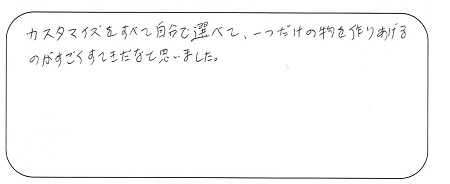 カスタマイズをすべて自分で選べて、一つだけの物を作りあげる
のがすごくすてきだなと思いました。